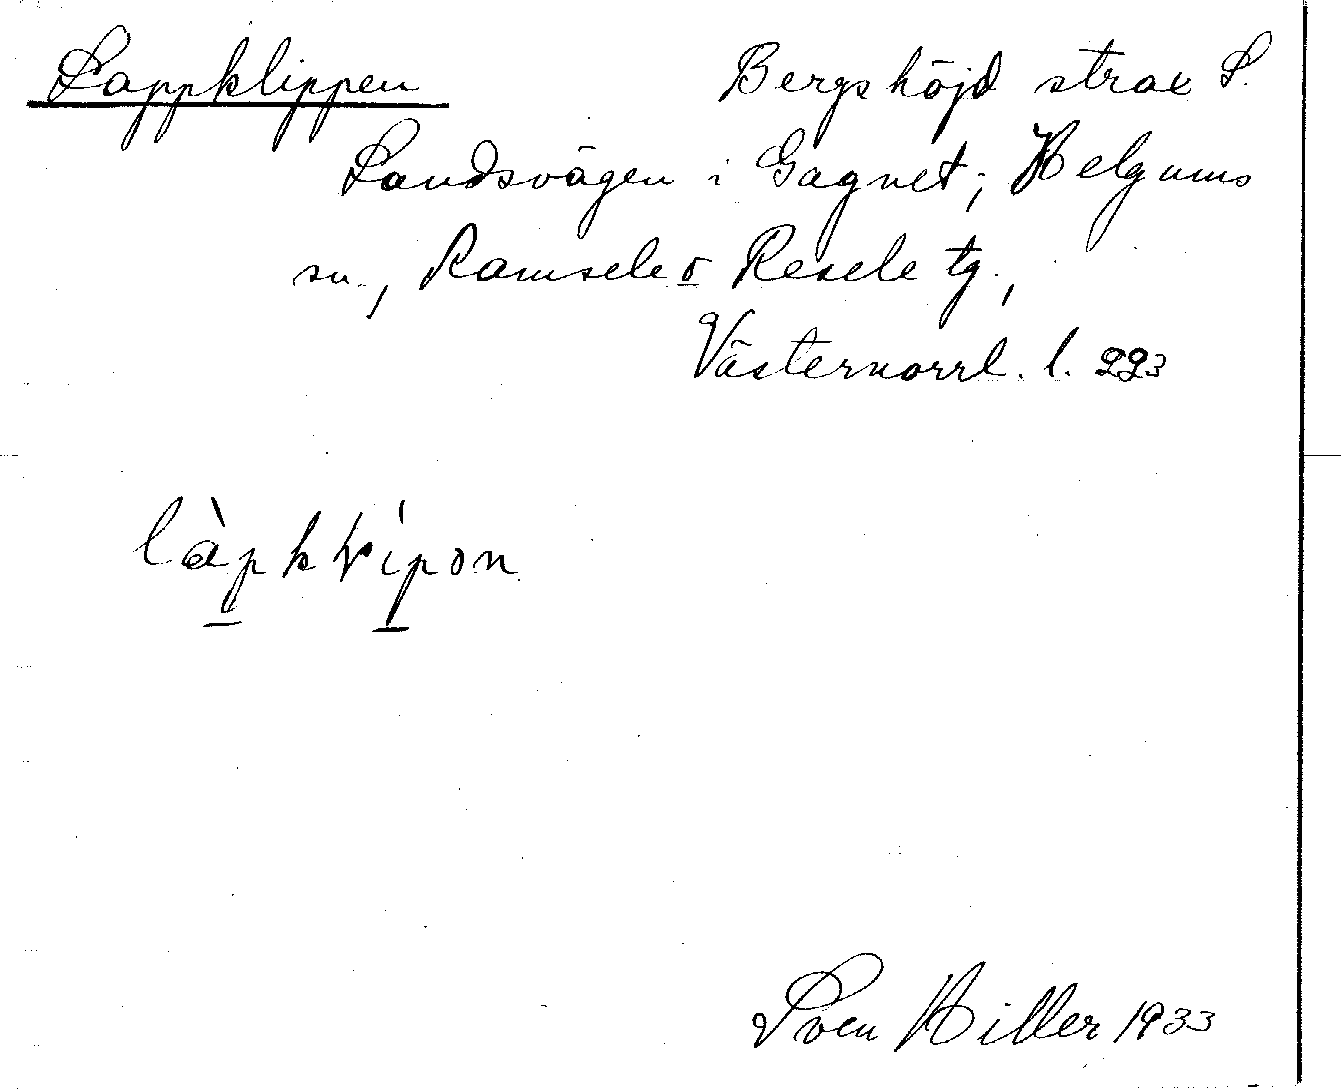 Lappklippen Bergshöjd strax S.
Landsvägen i Gagnet; Helgums
sn., Ramsele o Resele tg,
Västernorrl. l. 223
làpkḷípon
Sven Hiller 1933